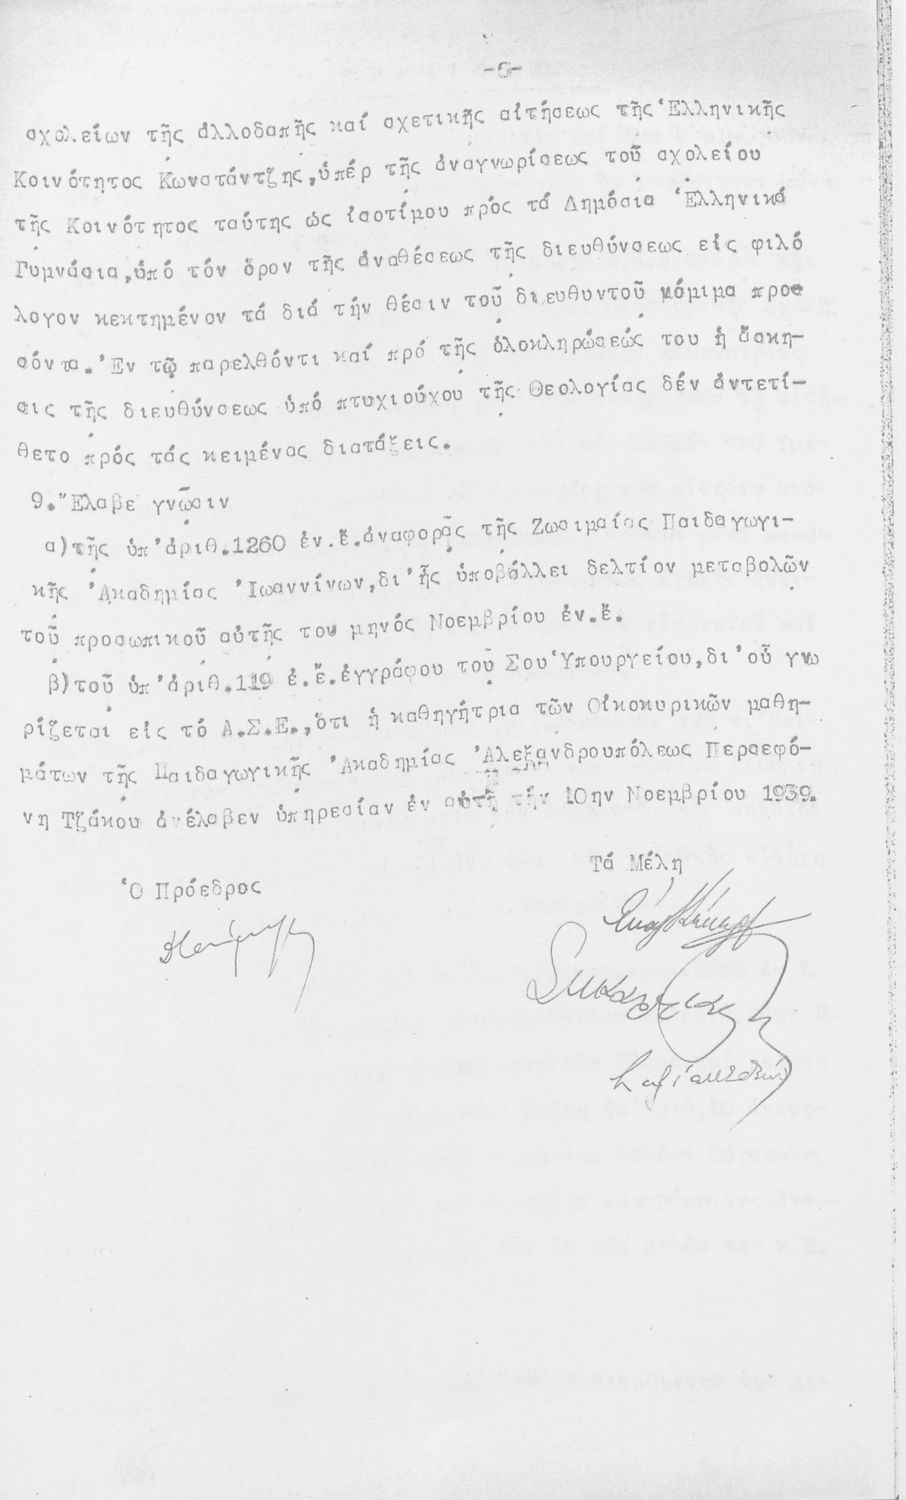 -6-
σχολείων τῆς ἀλλοδαπῆς καί σχετικῆς αἰτήσεως τῆς Ἑλληνικῆς
Κοινότητος Κωνστάντζης,ὑπέρ τῆς ἀναγνωρίσεως τοῦ σχολείου
τῆς Κοινότητος ταύτης ὡς ἰσοτίμου πρός τά Δημόσια Ἑλληνικά
Γυμνάσια,ὑπό τόν ὅρον τῆς ἀναθέσεως τῆς διευθύνσεως εἰς φιλό
λογον κεκτημένον τά διά τήν θέσιν τοῦ διευθυντοῦ νόμιμα προσ
όντα. Ἐν τῷ παρελθόντι καί πρό τῆς ὁλοκληρώσεώς του ἡ ἄσκη-
σις τῆς διευθύνσεως ὑπό πτυχιούχου τῆς Θεολογίας δέν ἀντετί-
θετο πρός τάς κειμένας διατάξεις.
9. Ἔλαβε γνῶσιν
α)τῆς ὑπ'ἀριθ.1260 ἐν.ἔ.ἀναφορᾶς τῆς Ζωσιμαίας Παιδαγωγι-
κῆς Ἀκαδημίας Ἰωαννίνων,δι'ἧς ὑποβάλλει δελτίον μεταβολῶν
τοῦ προσωπικοῦ αὐτῆς του μηνός Νοεμβρίου ἐν.ἔ.
β)τοῦ ὑπ'ἀριθ.119 ἐ.ἔ.ἐγγράφου τοῦ Σου Ὑπουργείου,δι'οὗ γνω
ρίζεται εἰς τό Α.Σ.Ε.,ὅτι ἡ καθηγήτρια τῶν Οἰκοκυρικῶν μαθη-
μάτων τῆς Παιδαγωγικῆς Ἀκαδημίας Ἀλεξανδρουπόλεως Περσεφό-
νη Τζάκου ἀνέλαβεν ὑπηρεσίαν ἐν αὐτῇ τήν 10ην Νοεμβρίου 1939.
Τά Μέλη
Ὁ Πρόεδρος